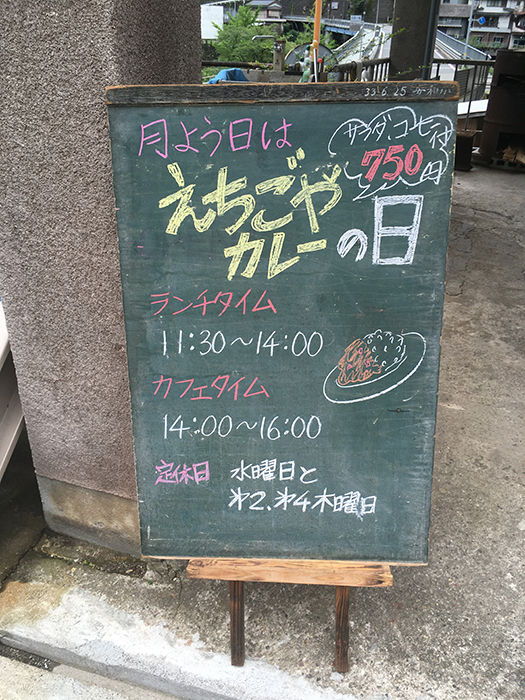 33.6.25
月よう日は
サラダ、コーヒー付
750円
えちごや
カレーの日
ランチタイム
11:30～14:00
カフェタイム
14:00～16:00
定休日 水曜日と
㐧2、㐧4木曜日